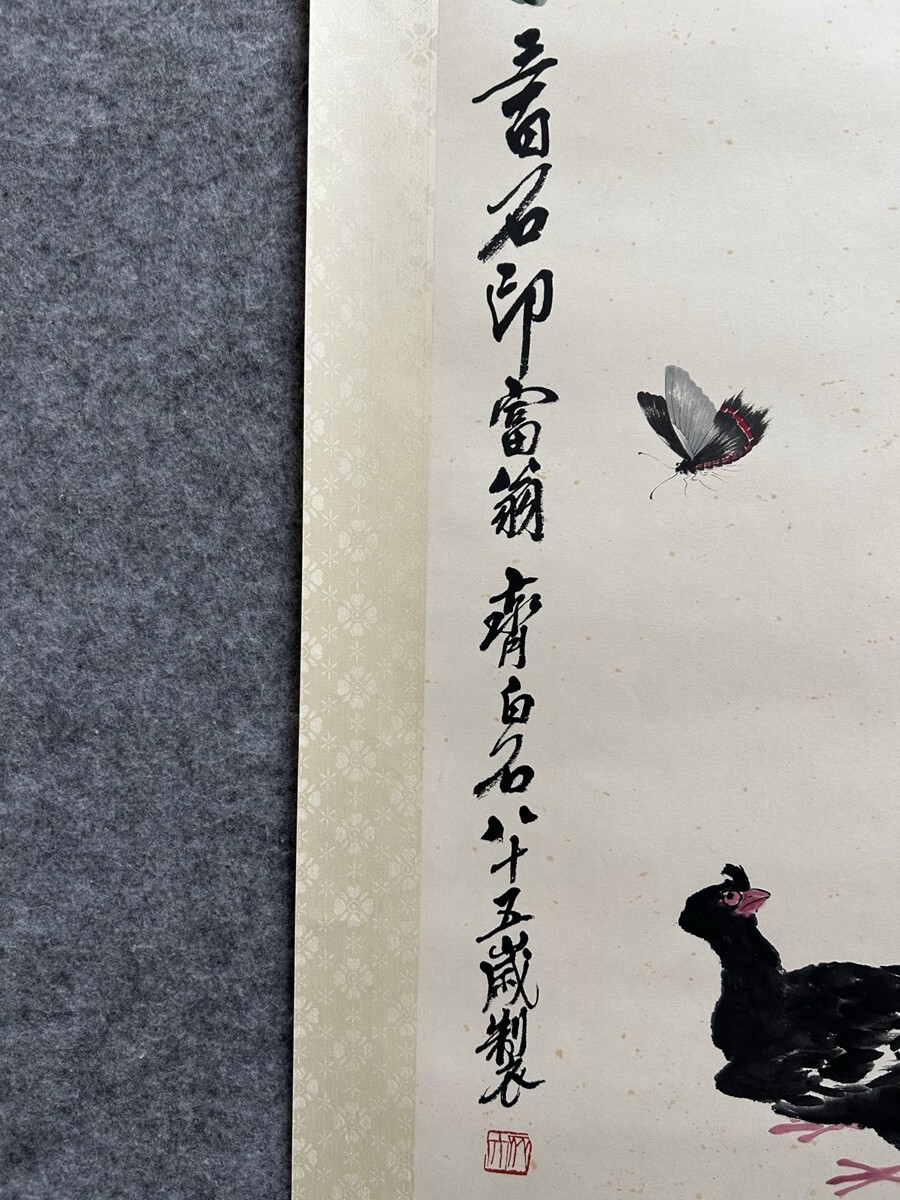 三百石印富翁 齊白石八十五歲製